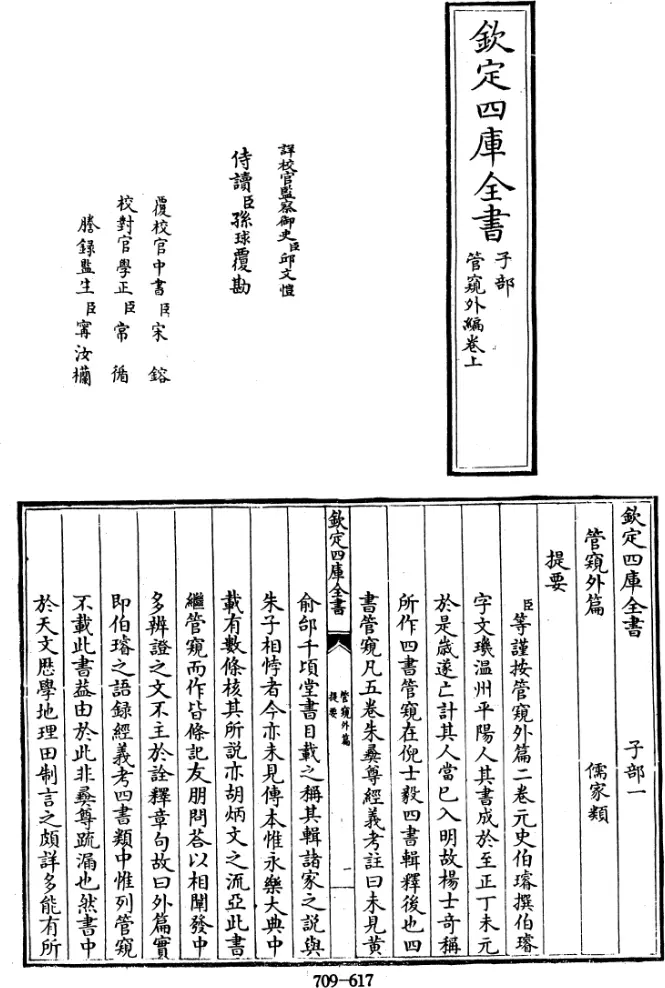 欽定四庫全書
子部
管窺外編卷上
詳校官監察御史臣邱文愷
侍讀臣孫球覆勘
覆校官中書臣宋鎔
校對官學正臣常循
謄錄監生臣甯汝欄
欽定四庫全書 子部一
管窺外篇 儒家類
提要
臣等謹按管窺外篇二卷元史伯璿撰伯璿
字文璣温州平陽人其書成於至正丁未元
於是歲遂亡計其人當已入明故楊士奇稱
所作四書管窺在倪士毅四書輯釋後也四
書管窺凡五卷朱彞尊經義考註曰未見黃
欽定四庫全書
管窺外篇
提要
一
俞邰千頃堂書目載之稱其輯諸家之説與
朱子相悖者今亦未見傳本惟永樂大典中
載有數條核其所説亦胡炳文之流亞此書
繼管窺而作皆條記友朋問荅以相闡發中
多辨證之文不主於詮釋章句故曰外篇實
即伯璿之語録經義考四書類中惟列管窺
不載此書葢由於此非彞尊疏漏也然書中
於天文歴學地理田制言之頗詳多能有所
709-617